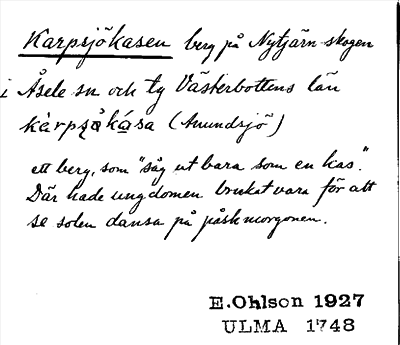 Karpsjökasen berg på Nytjärn-skogen
i Åsele sn och tg Västerbottens län
kàrpʂåkása (Anundsjö)
ett berg, som "såg ut bara som en kas".
Där hade ungdomen brukat vara för att
se solen dansa på påskmorgonen.
E.Ohlson 1927
ULMA 1748